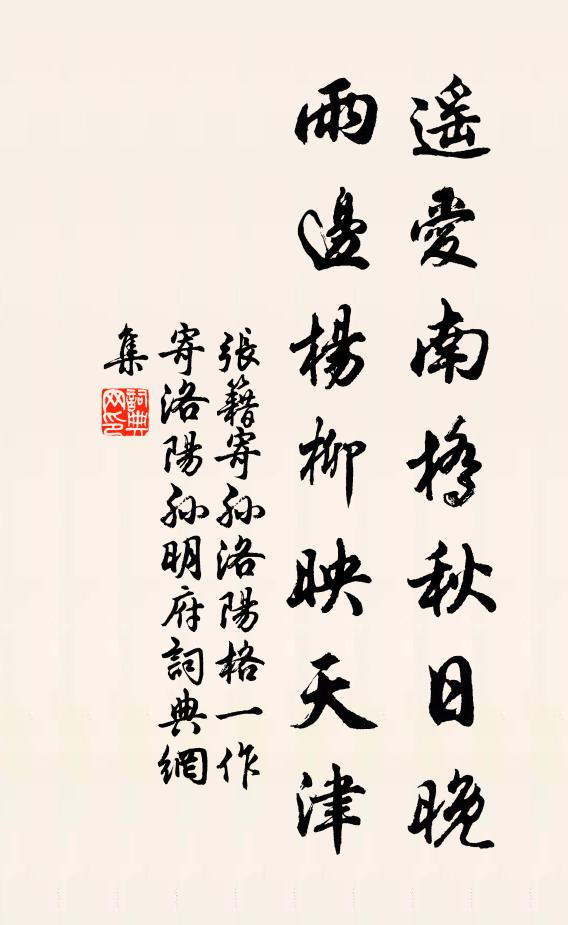 遥愛南橋秋日晚
雨邊楊柳映天津
張籍寄孫洛陽格一作
寄洛陽孫明府詞典網
集
詞典
网印